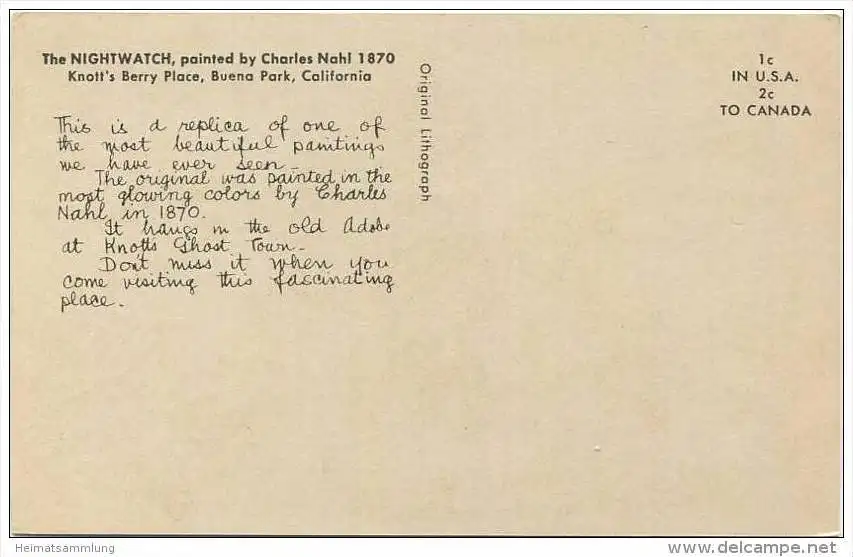 The NIGHTWATCH, painted by Charles Nahl 1870
Knott's Berry Place, Buena Park, California
This is a replica of one of
the most beautiful paintings
we have ever seen.
The original was painted in the
most glowing colors by Charles
Nahl in 1870.
It hangs in the old Adobe
at Knotts Ghost Town.
Don't miss it when you
come visiting this fascinating
place.
Original Lithograph
1c
IN U.S.A.
2c
TO CANADA
Heimatsammlung
www.delcampe.net